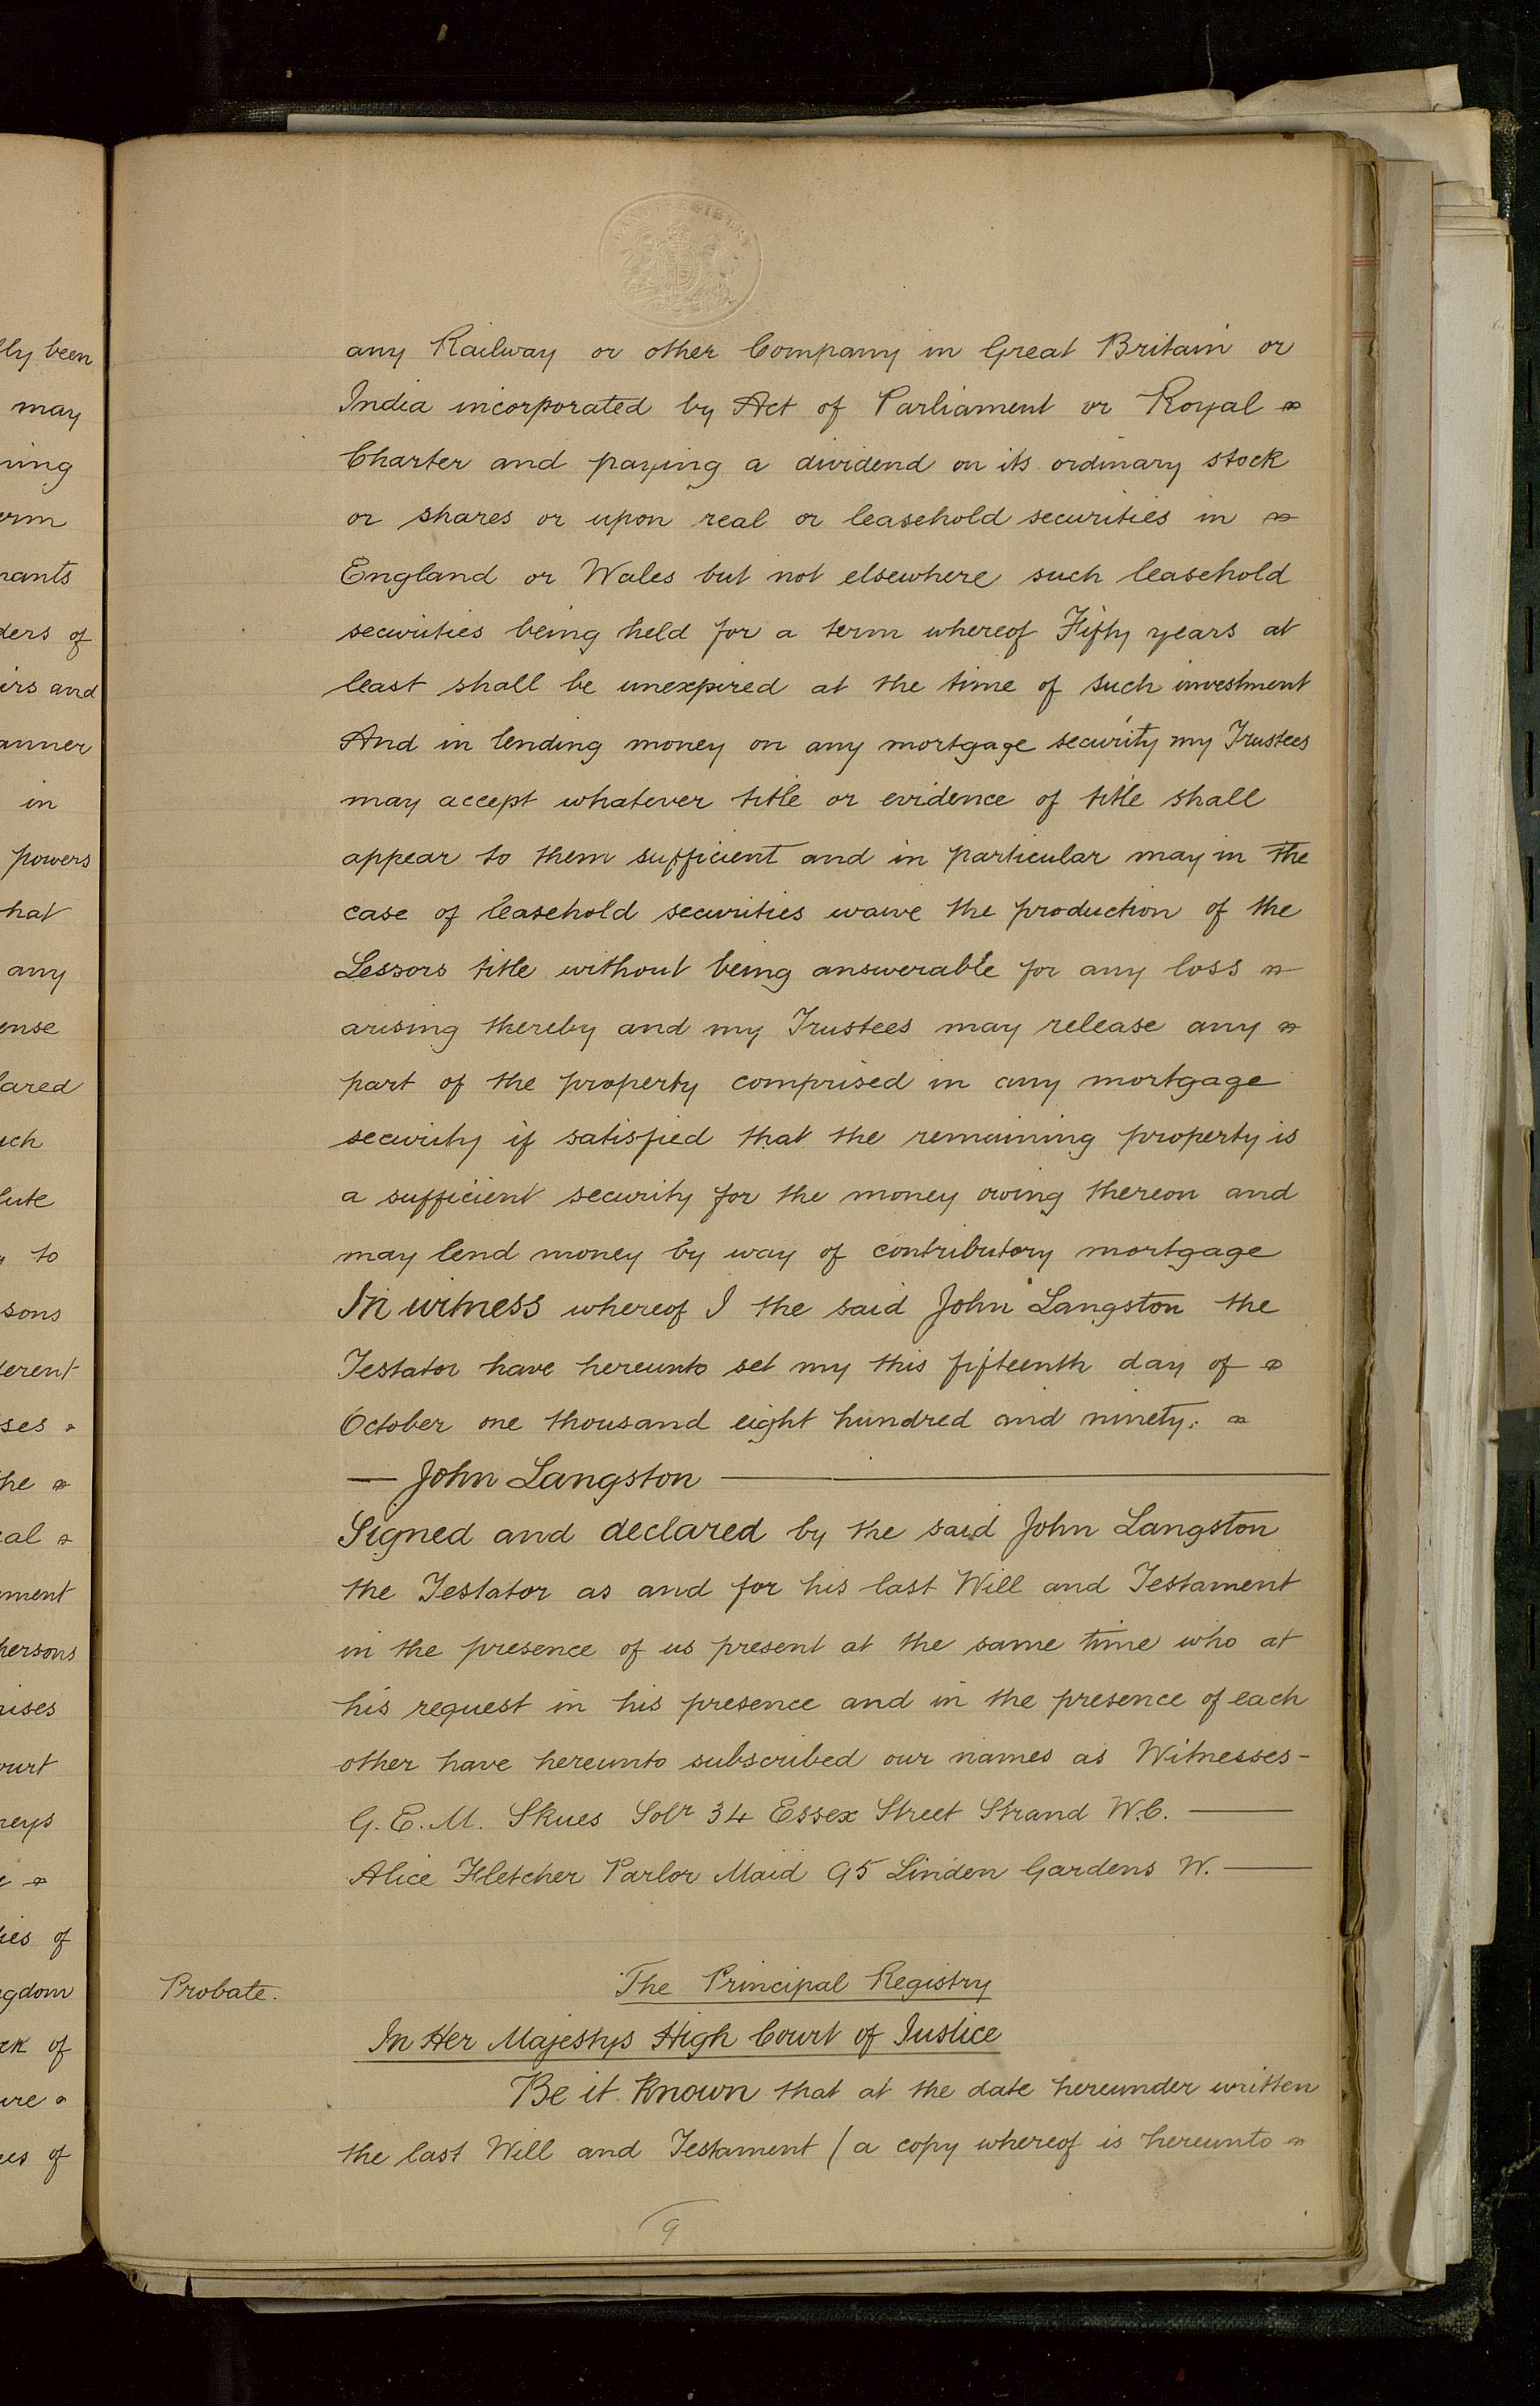 any Railway or other Company in Great Britain or
India incorporated by Act of Parliament or Royal
Charter and paying a dividend on its ordinary stock
or shares or upon real or leasehold securities in
England or Wales but not elsewhere such leasehold
securities being held for a term whereof Fifty years at
least shall be unexpired at the time of such investment
And in lending money on any mortgage security my Trustees
may accept whatever title or evidence of title shall
appear to them sufficient and in particular may in the
case of leasehold securities waive the production of the
Lessors title without being answerable for any loss
arising thereby and my Trustees may release any
part of the property comprised in any mortgage
security if satisfied that the remaining property is
a sufficient security for the money owing thereon and
may lend money by way of contributory mortgage
In witness whereof I the said John Langston the
Testator have hereunto set my this fifteenth day of
October one thousand eight hundred and ninety.
— John Langston —
Signed and declared by the said John Langston
the Testator as and for his last Will and Testament
in the presence of us present at the same time who at
his request in his presence and in the presence of each
other have hereunto subscribed our names as Witnesses -
G. E. M. Skues Solr 34 Essex Street Strand W.C. —
Alice Fletcher Parlor Maid 95 Linden Gardens W. —
Probate.
The Principal Registry
In Her Majestys High Court of Justice
Be it known that at the date hereunder written
the last Will and Testament (a copy whereof is hereunto
9
lly been
may
ning
erm
nants
ders of
irs and
anner
in
powers
hat
any
ense
lared
uch
lute
to
sons
ferent
ses
he
al
ment
persons
ises
ourt
neys
ies of
gdom
ck of
ure
es of